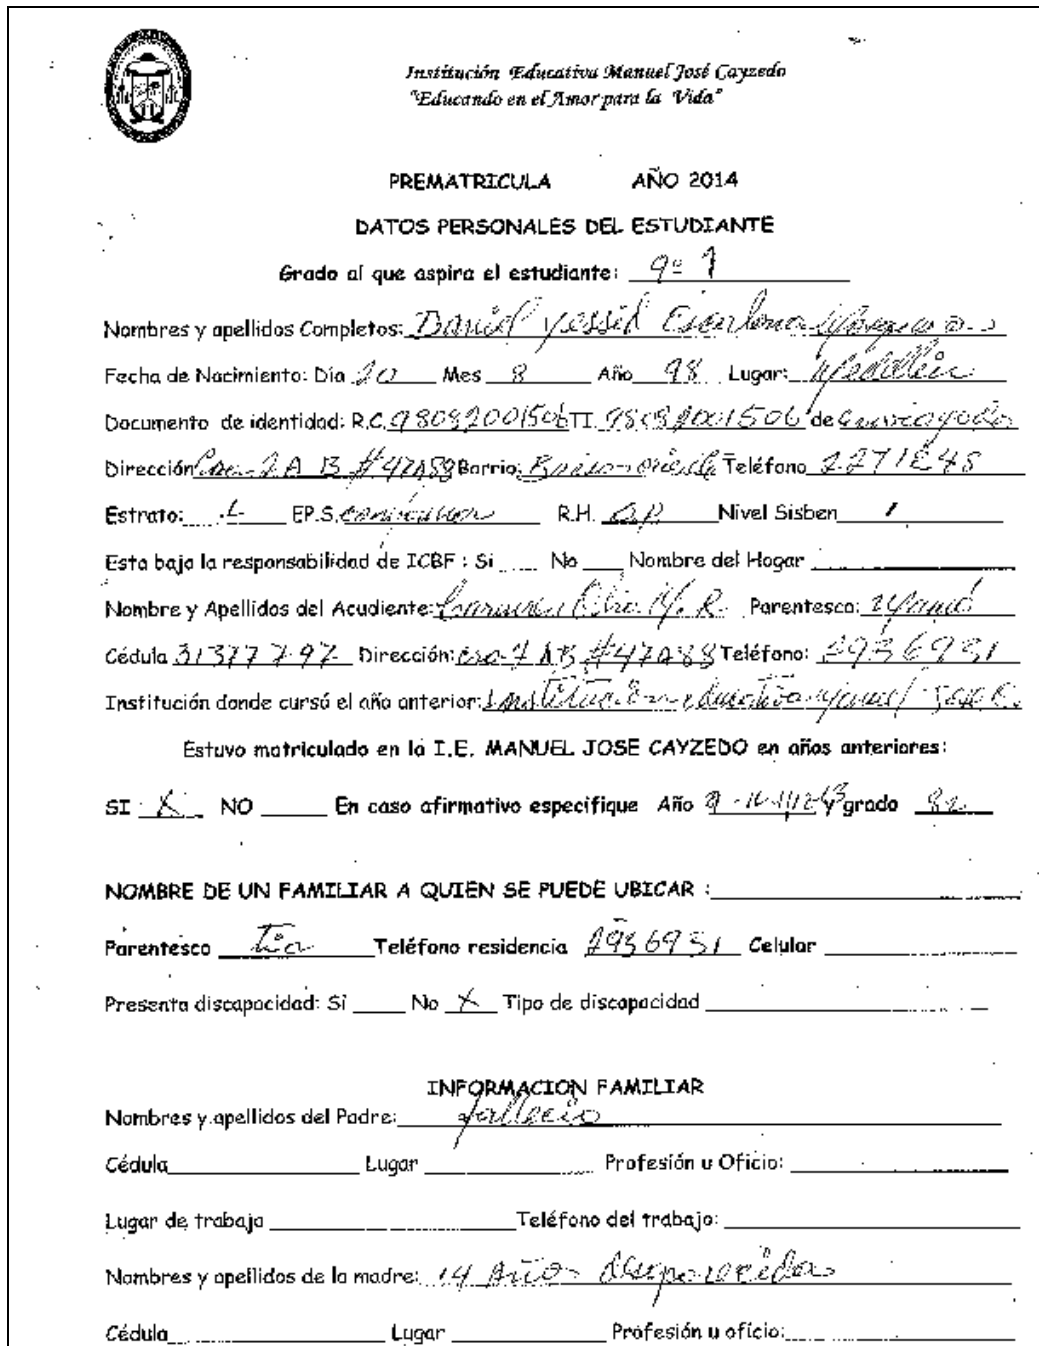 Institución Educativa Manuel José Cayzedo
"Educando en el Amor para la Vida"
PREMATRICULA AÑO 2014
DATOS PERSONALES DEL ESTUDIANTE
Grado al que aspira el estudiante: 9º 1
Nombres y apellidos Completos: Daniel Yessid
Fecha de Nacimiento: Día 20 Mes 8 Año 98 Lugar: Medellín
Documento de identidad: R.C. 98082001506 TI. 98082001506 de
Dirección # 47A88 Barrio: Teléfono
Estrato: EP.S. R.H. Nivel Sisben 1
Esta bajo la responsabilidad de ICBF : Si No Nombre del Hogar
Nombre y Apellidos del Acudiente: M. R. Parentesco:
Cédula Dirección: #47A88 Teléfono:
Institución donde cursó el año anterior: Institución educativa Manuel José C.
Estuvo matriculado en la I.E. MANUEL JOSE CAYZEDO en años anteriores:
SI X NO En caso afirmativo especifique Año y grado
NOMBRE DE UN FAMILIAR A QUIEN SE PUEDE UBICAR :
Parentesco Tia Teléfono residencia Celular
Presenta discapacidad: Si No X Tipo de discapacidad
INFORMACION FAMILIAR
Nombres y apellidos del Padre: fallecio
Cédula Lugar Profesión u Oficio:
Lugar de trabajo Teléfono del trabajo:
Nombres y apellidos de la madre: 14 Años
Cédula Lugar Profesión u oficio: